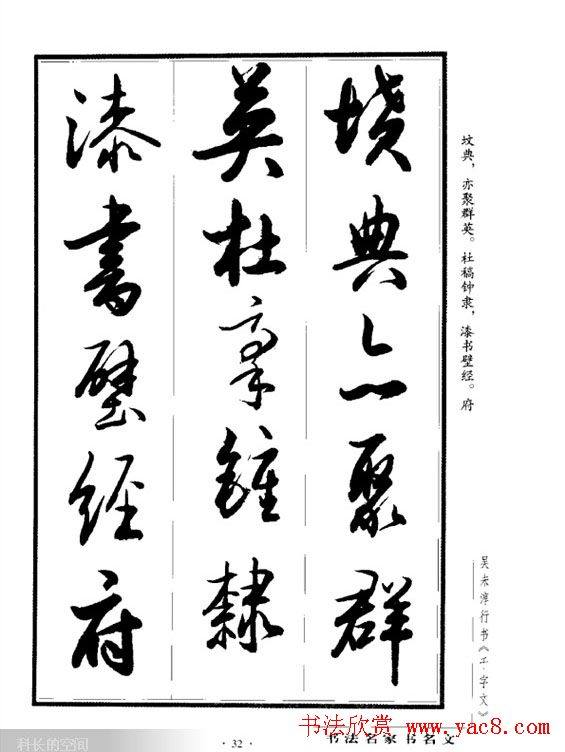 墳典亦聚群
英杜稾鍾隸
漆書壁經府
坟典，亦聚群英。杜稿钟隶，漆书壁经。府
吴未淳行书《千字文》
· 32 ·
书法名家书名文
书法欣赏 www.yac8.com
科长的空间